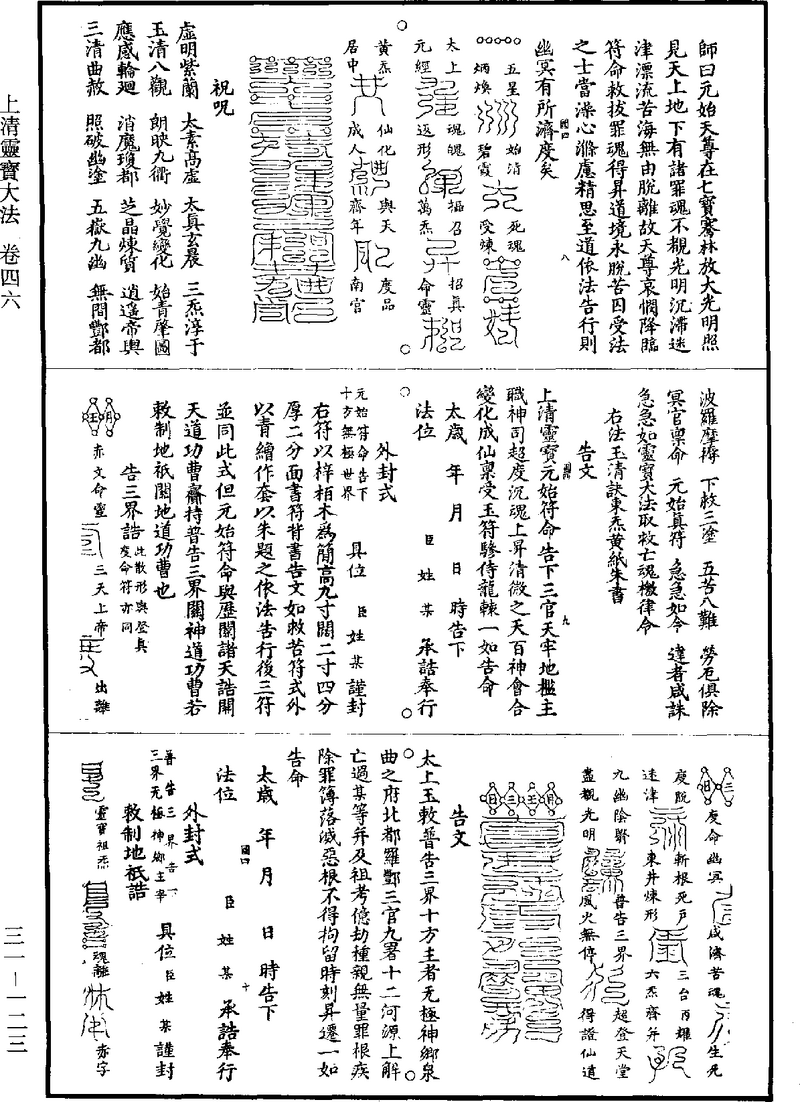 上清靈寶大法　卷四六
三一—一二三
師曰元始天尊在七寶騫林放大光明照
見天上地下有諸罪魂不覩光明沉滯迷
津漂流苦海無由脫離故天尊哀憫降臨
符命救拔罪魂得昇道境永脫苦因受法
之士當澡心滌慮精思至道依法告行則
幽冥有所濟度矣
五星　始清　死魂
炳煥　碧霞　受煉
太上　魂魄　攝召　招真
元經　返形　萬炁　命靈
黃炁　仙化　與天　度品
居中　成人　齊年　南宮
祝呪
虛明紫蘭　太素高虛　太真玄晨　三炁淳于
玉清八觀　朗映九衢　妙覺變化　始青肇圖
應感輪迴　消魔瓊都　芝晶煉質　逍遥帝輿
三清曲赦　照破幽塗　五嶽九幽　無間酆都
波羅摩搏　下赦三塗　五苦八難　勞厄俱除
冥官稟命　元始真符　急急如令　違者咸誅
急急如靈寶大法取救亡魂檄律令
右法玉清訣東炁黃紙朱書
告文
上清靈寶元始符命告下三官天牢地檻主
職神司超度沉魂上昇清微之天百神會合
變化成仙稟受玉符驂侍龍輧一如告命
太歲　年　月　日　時告下
法位　臣　姓　某　承誥奉行
外封式
元始符命告下
十方無極世界　具位　臣　姓　某　謹封
右符以梓栢木爲簡高九寸闊二寸四分
厚二分面書符背書告文如救苦符式外
以青繒作套以朱題之依法告行後三符
並同此式但元始符命與歷關諸天誥開
天道功曹齎持普告三界關神道功曹若
敕制地祇關地道功曹也
告三界誥　此散形與登真度命符亦同
赤文命靈　三天上帝　出離
度命幽冥　咸濟苦魂　生死
度脫　斬根死戶　三台丙耀
迷津　東井煉形　六炁齊并
九幽陰翳　普告三界　超登天堂
盡覩光明　風火無停　得證仙道
告文
太上玉敕普告三界十方主者无極神鄉泉
曲之府北都羅酆三官九署十二河源上解
亡過某等并及祖考億劫種親無量罪根疾
除罪簿落滅惡根不得拘留時刻昇遷一如
告命
太歲　年　月　日　時告下
法位　臣　姓　某　承誥奉行
外封式
三界无極神鄉主宰　具位　臣　姓　某　謹封
敕制地祇誥
靈寶祖炁　魂離　赤字